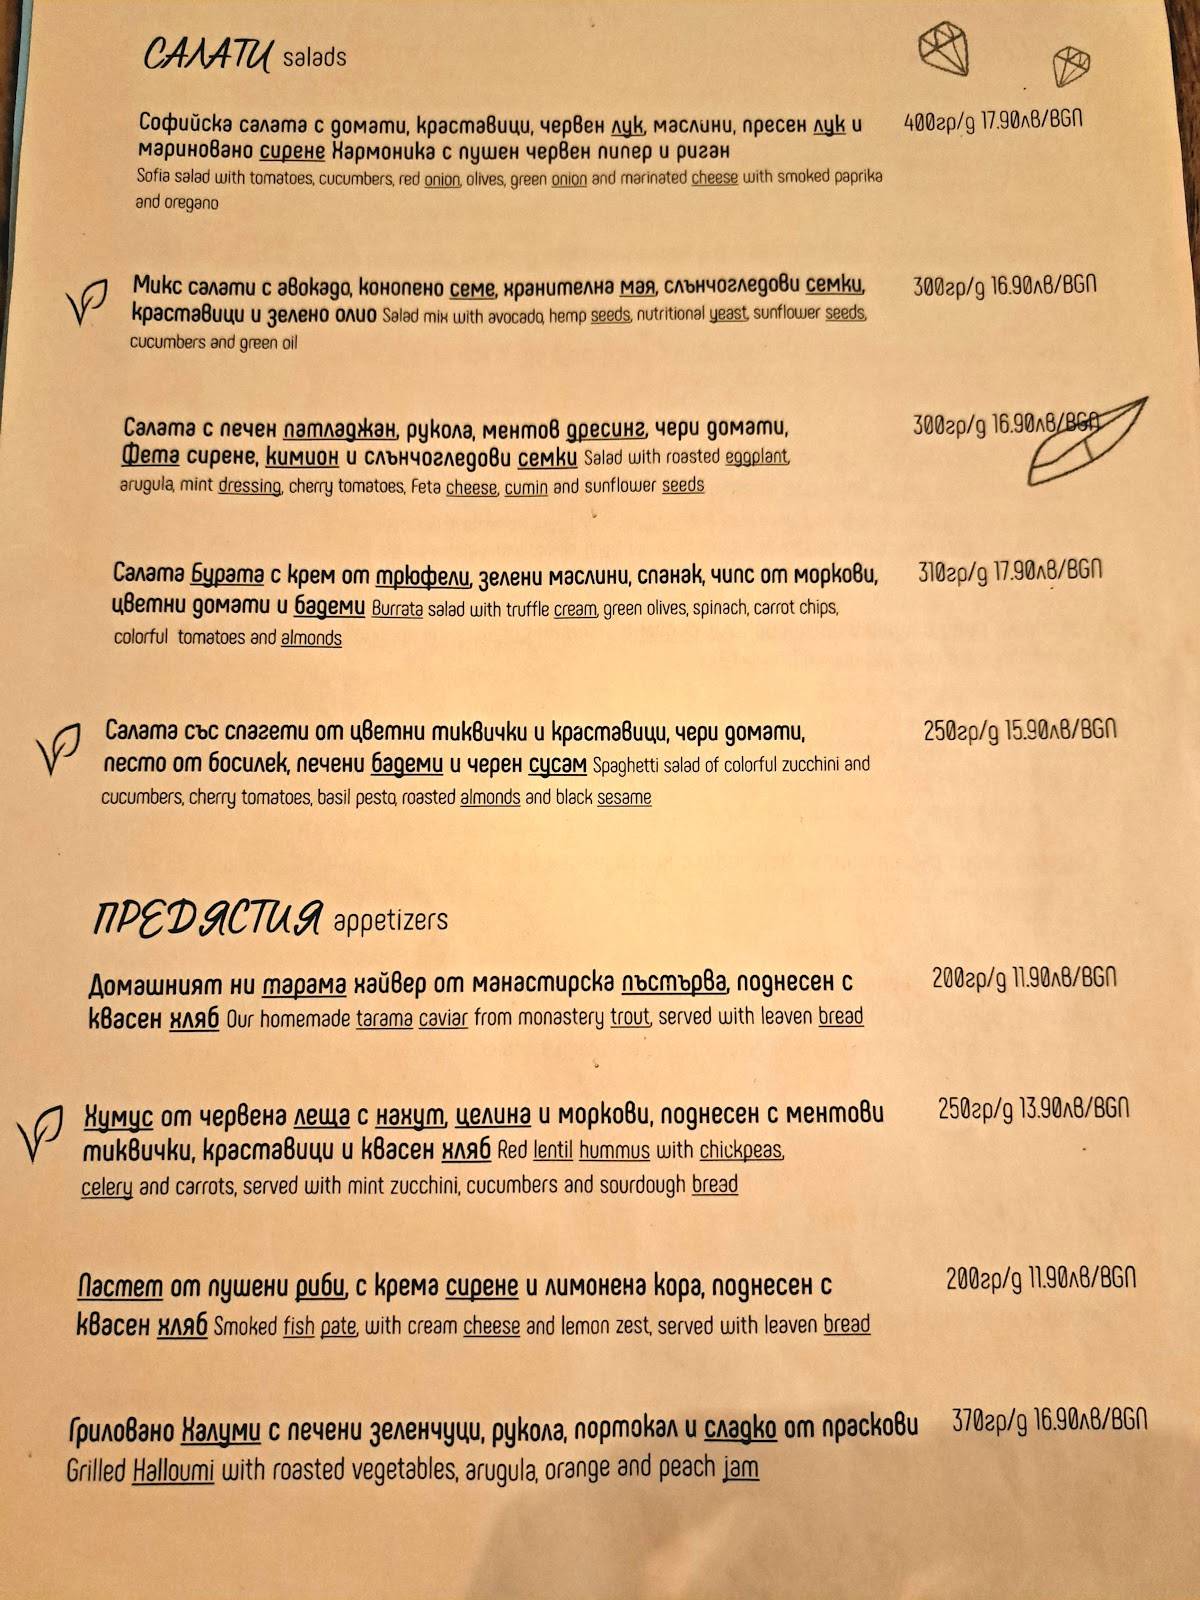 САЛАТИ salads
Софийска салата с домати, краставици, червен лук, маслини, пресен лук и 400гр/g 17.90лв/BGN
мариновано сирене Хармоника с пушен червен пипер и риган
Sofia salad with tomatoes, cucumbers, red onion, olives, green onion and marinated cheese with smoked paprika
and oregano
Микс салати с авокадо, конопено семе, хранителна мая, слънчогледови семки, 300гр/g 16.90лв/BGN
краставици и зелено олио Salad mix with avocado, hemp seeds, nutritional yeast, sunflower seeds,
cucumbers and green oil
Салата с печен патладжан, рукола, ментов дресинг, чери домати, 300гр/g 16.90лв/BGN
Фета сирене, кимион и слънчогледови семки Salad with roasted eggplant,
arugula, mint dressing, cherry tomatoes, Feta cheese, cumin and sunflower seeds
Салата Бурата с крем от трюфели, зелени маслини, спанак, чипс от моркови, 310гр/g 17.90лв/BGN
цветни домати и бадеми Burrata salad with truffle cream, green olives, spinach, carrot chips,
colorful tomatoes and almonds
Салата със спагети от цветни тиквички и краставици, чери домати, 250гр/g 15.90лв/BGN
песто от босилек, печени бадеми и черен сусам Spaghetti salad of colorful zucchini and
cucumbers, cherry tomatoes, basil pesto, roasted almonds and black sesame
ПРЕДЯСТИЯ appetizers
Домашният ни тарама хайвер от манастирска пъстърва, поднесен с 200гр/g 11.90лв/BGN
квасен хляб Our homemade tarama caviar from monastery trout, served with leaven bread
Хумус от червена леща с нахут, целина и моркови, поднесен с ментови 250гр/g 13.90лв/BGN
тиквички, краставици и квасен хляб Red lentil hummus with chickpeas,
celery and carrots, served with mint zucchini, cucumbers and sourdough bread
Пастет от пушени риби, с крема сирене и лимонена кора, поднесен с 200гр/g 11.90лв/BGN
квасен хляб Smoked fish pate, with cream cheese and lemon zest, served with leaven bread
Гриловано Халуми с печени зеленчуци, рукола, портокал и сладко от праскови 370гр/g 16.90лв/BGN
Grilled Halloumi with roasted vegetables, arugula, orange and peach jam